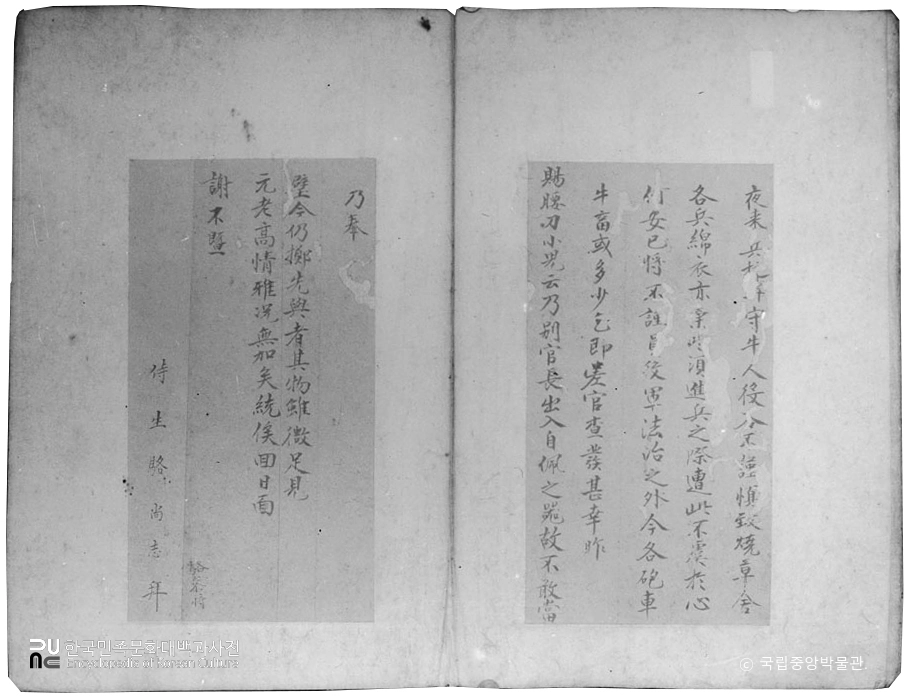 夜来兵 守牛人役不謹慎致燒草舍
各兵綿衣亦 此須進兵之際遭此不虞於心
何安已將不謹員役軍法治之外今各砲車
牛畜或多少乞即差官查發甚幸昨
賜腰刀小兒云乃別官長出入自佩之器故不敢當
乃奉
璧今仍擲先與者其物雖微足見
元老高情雅况無加矣統俟回日面
謝不曁
侍生駱尚志拜
駱 將
한국민족문화대백과사전
Encyclopedia of Korean Culture
ⓒ 국립중앙박물관